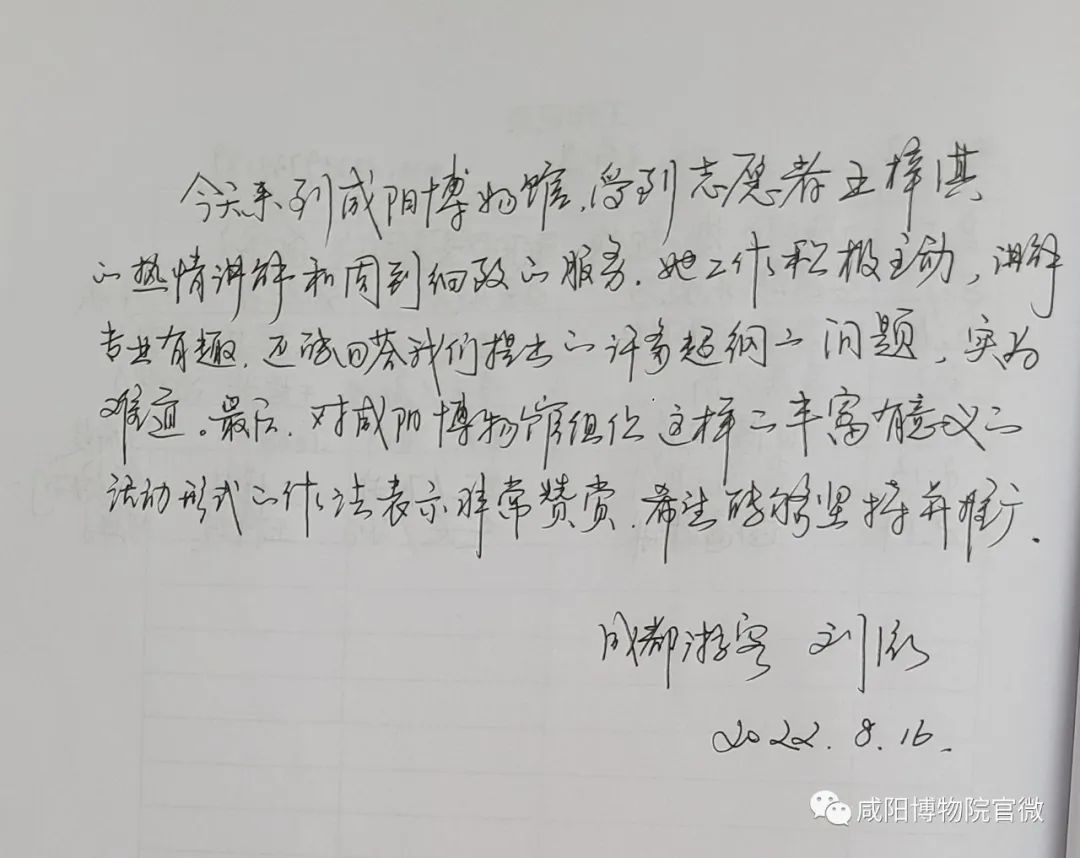 今天来到咸阳博物馆,受到志愿者王梓淇
的热情讲解和周到细致的服务.她工作积极主动,讲解
专业有趣.还能回答我们提出的许多超纲的问题,实为
难道。最后.对咸阳博物馆组织这样的丰富有意义的
活动形式的作法表示非常赞赏.希望能够坚持并推广.
成都游客 刘
2022.8.16.
咸阳博物院官微